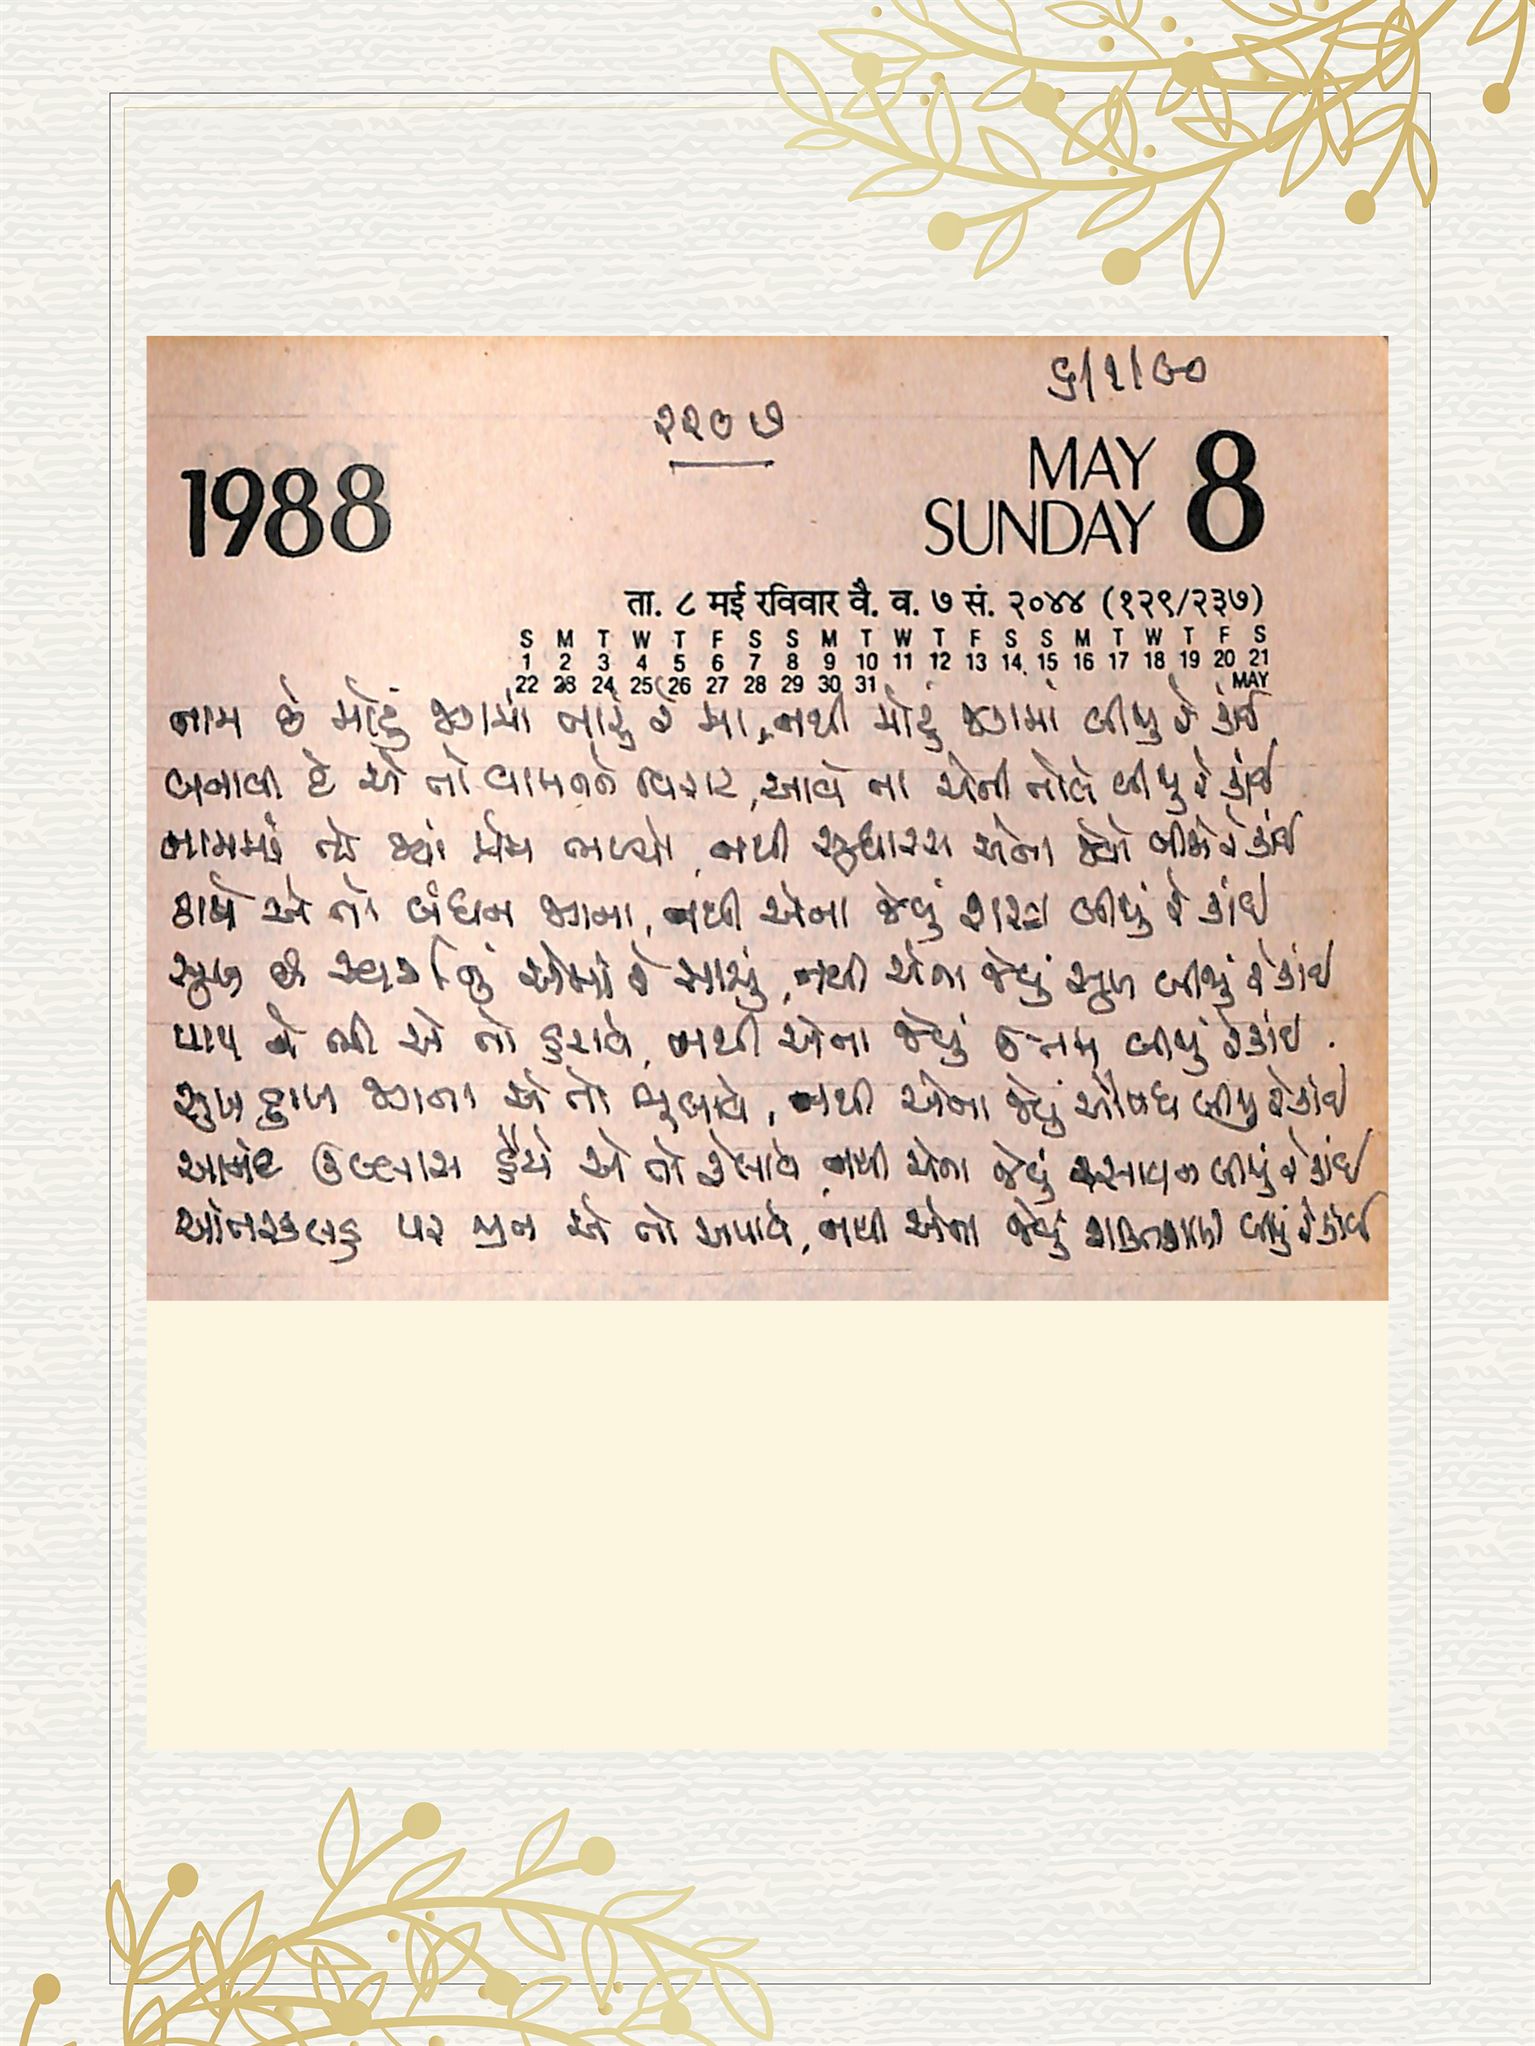 ૬/૧/૯૦
૨૨૦૭
1988
MAY
SUNDAY 8
ता. ८ मई रविवार वै. व. ७ सं. २०४४ (१२९/२३७)
S M T W T F S S M T W T F S S M T W T F S
1 2 3 4 5 6 7 8 9 10 11 12 13 14 15 16 17 18 19 20 21
22 23 24 25 26 27 28 29 30 31 MAY
નામ છે મોટું જગમાં તારું રે મા, નથી મોટું જગમાં બીજું રે કાંઈ
બનાવી દે એ તો વામનને વિરાટ, આવે ના એની તોલે બીજું રે કાંઈ
નામમાં તો જ્યાં પ્રેમ ભળ્યો, નથી સુધારસ એના જેવો બીજો રે કાંઈ
કાપે એ તો બંધન જગના, નથી એના જેવું શસ્ત્ર બીજું રે કાંઈ
સુખ છે સ્વર્ગનું એમાં રે સાચું, નથી એના જેવું સુખ બીજું રે કાંઈ
પાપ ને ભી એ તો હરાવે, નથી એના જેવું ઉત્તમ બીજું રે કાંઈ.
સુખ દુઃખ જગના એ તો ભુલાવે, નથી એના જેવું ઔષધ બીજું રે કાંઈ
આનંદ ઉલ્લાસ હૈયે એ તો રેલાવે, નથી એના જેવું રસાયન બીજું રે કાંઈ
પર એ તો અપાવે, નથી એના જેવું શક્તિશાળી બીજું રે કાંઈ